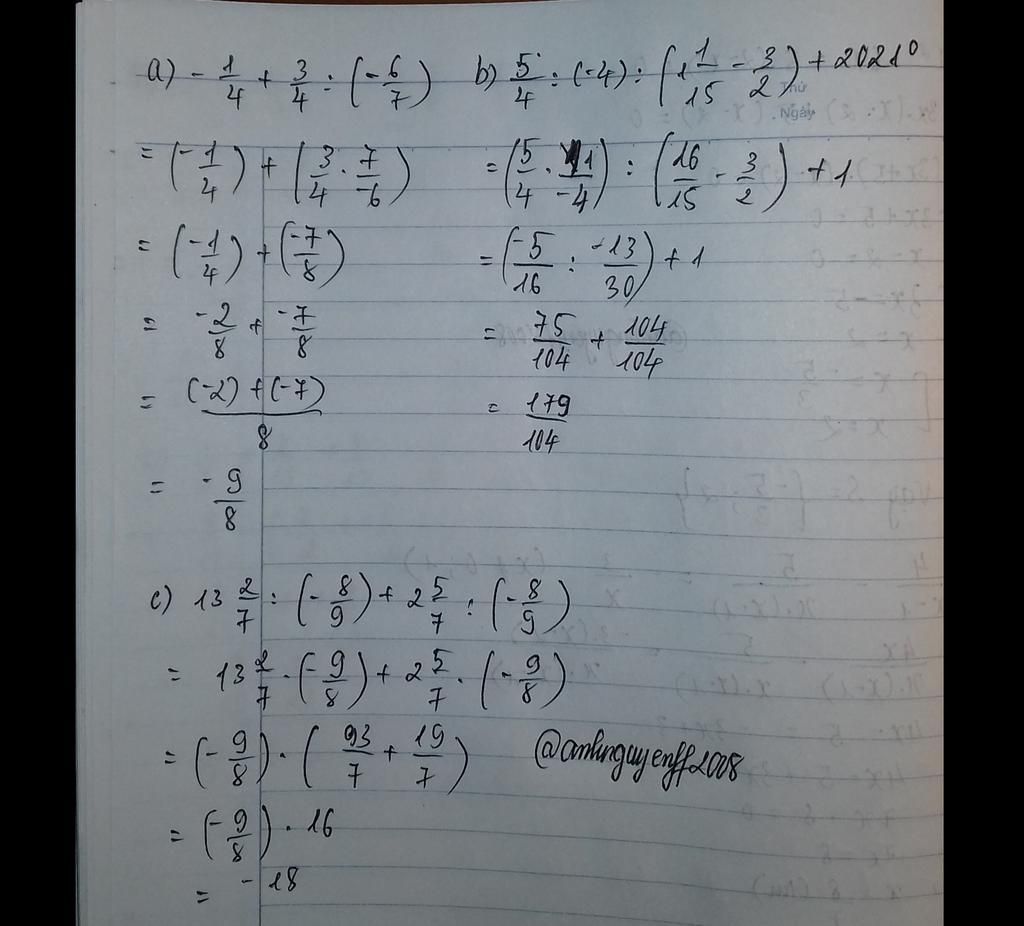 a) - 1/4 + 3/4 : (- 6/7)
= (-1/4) + (3/4 . 7/-6)
= (-1/4) + (-7/8)
= -2/8 + -7/8
= (-2) + (-7) / 8
= - 9/8
b) 5/4 : (-4) : (1 1/15 - 3/2) + 2021⁰
= (5/4 . 1/-4) : (16/15 - 3/2) + 1
= (-5/16 : -13/30) + 1
= 75/104 + 104/104
= 179/104
Thứ
Ngày
c) 13 2/7 : (- 8/9) + 2 5/7 : (- 8/9)
= 13 2/7 . (- 9/8) + 2 5/7 . (- 9/8)
= (- 9/8) . (93/7 + 19/7)
= (- 9/8) . 16
= - 18
@anhnguyenff2008